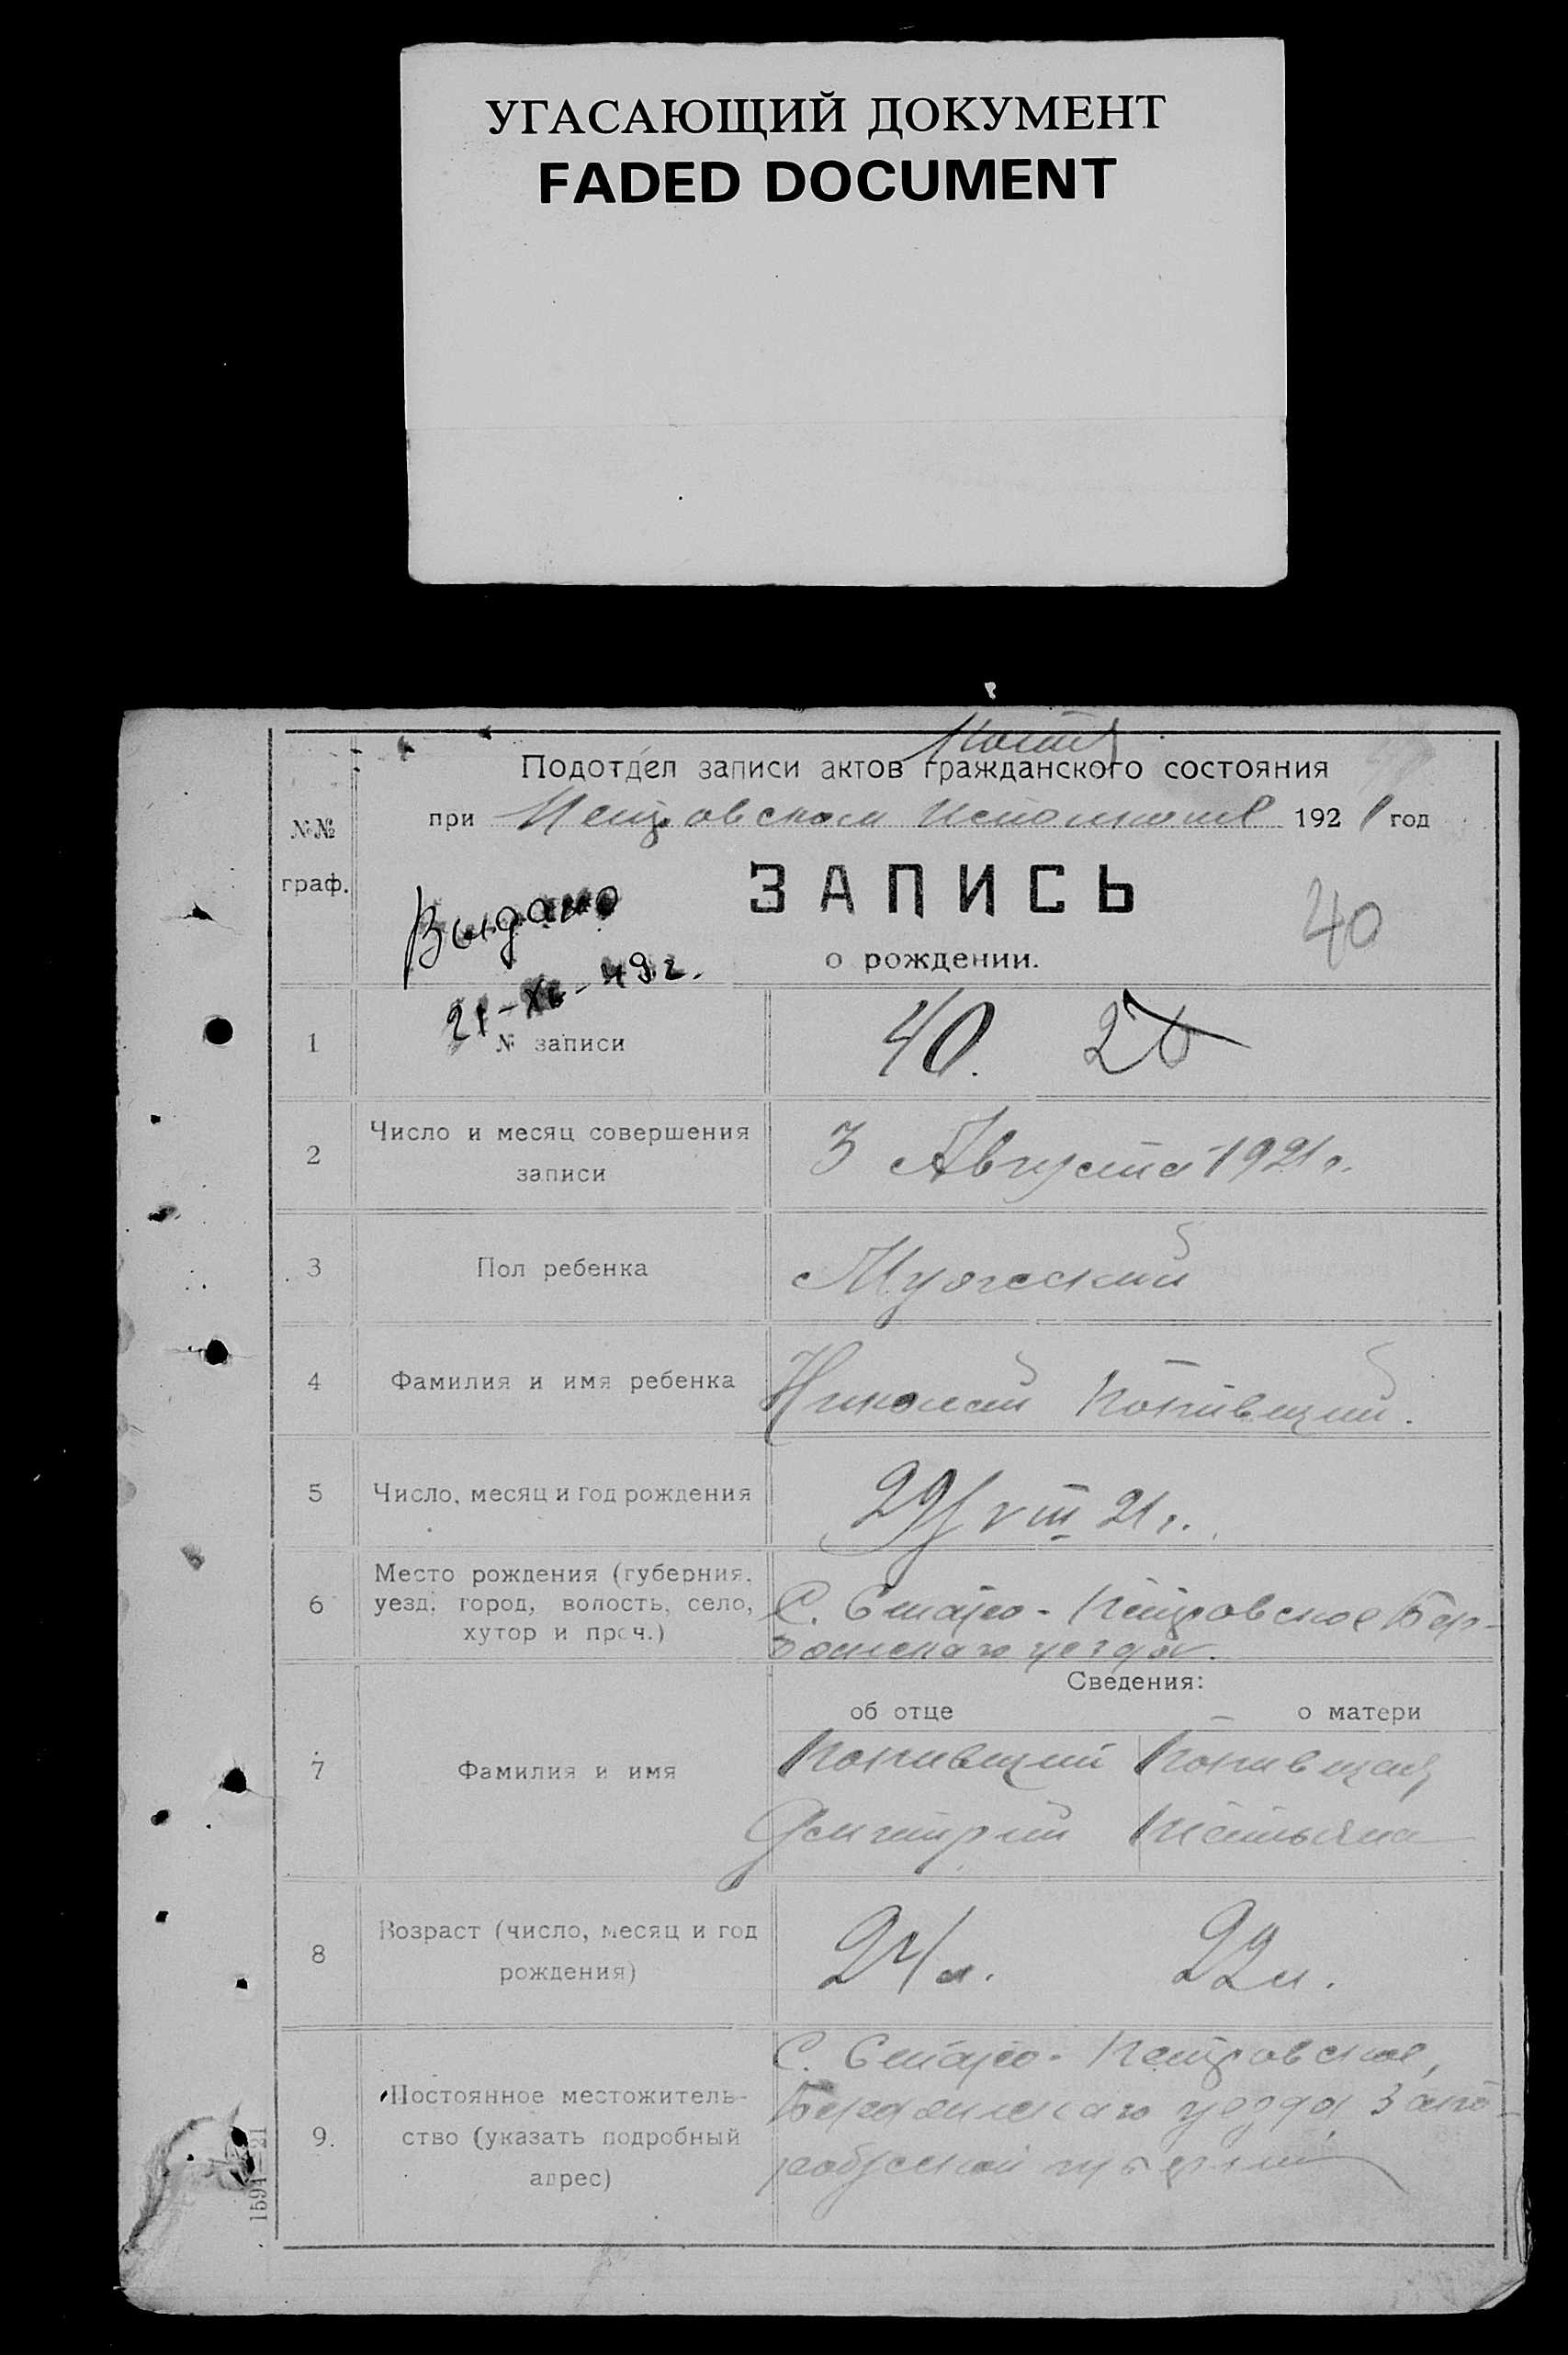 УГАСАЮЩИЙ ДОКУМЕНТ
FADED DOCUMENT
Подотдел записи актов гражданского состояния
при Петровском Исполкоме 1921 год
№№
граф.
ЗАПИСЬ
о рождении.
40
Выдано
21-XI-49г.
1 № записи 40.
2 Число и месяц совершения
записи 3 Августа 1921 г.
3 Пол ребенка Мужеский
4 Фамилия и имя ребенка Николай
5 Число, месяц и год рождения 29/VIII 21 г.
6 Место рождения (губерния,
уезд, город, волость, село,
хутор и проч.)
С. Старо-Петровское Бер-
дянскаго уезда.
Сведения:
об отце о матери
7 Фамилия и имя
Дмитрий Татьяна
8 Возраст (число, месяц и год
рождения) 24 л. 22 л.
9. Постоянное местожитель-
ство (указать подробный
адрес)
С. Старо-Петровское,
Бердянскаго уезда, Запо-
рожской губернии
1591—21